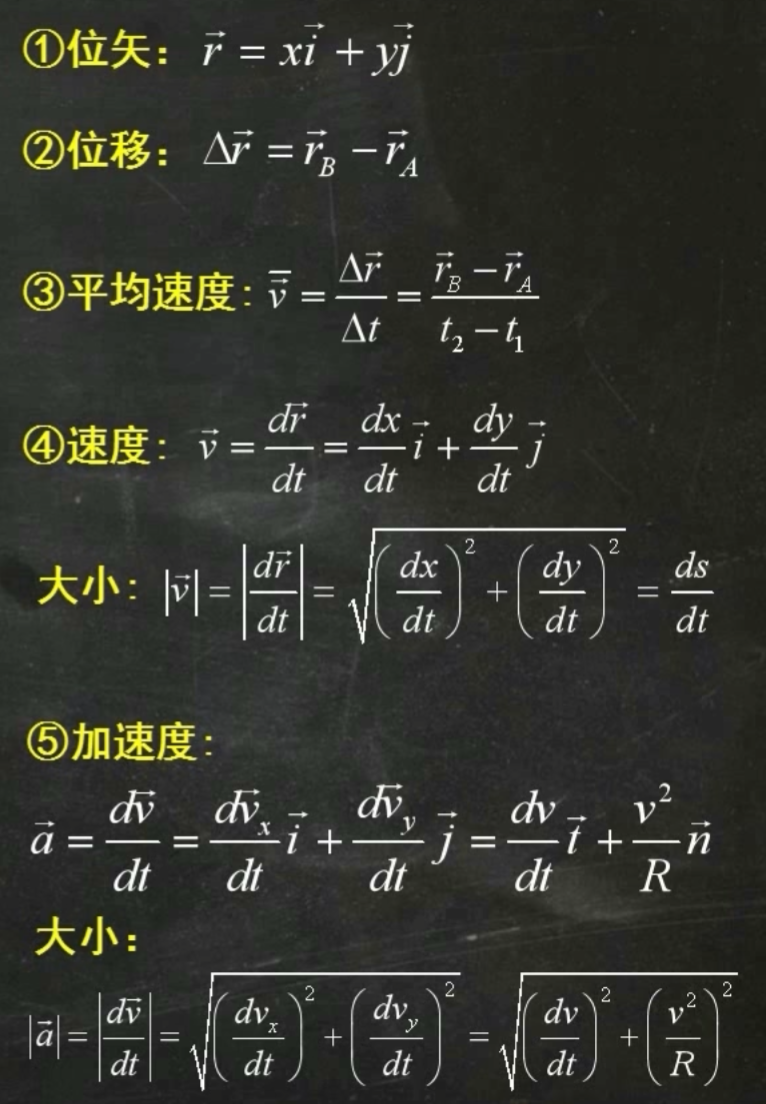 ①位矢： $\vec{r} = x\vec{i} + y\vec{j}$
②位移： $\Delta\vec{r} = \vec{r}_B - \vec{r}_A$
③平均速度： $\overline{\vec{v}} = \frac{\Delta\vec{r}}{\Delta t} = \frac{\vec{r}_B - \vec{r}_A}{t_2 - t_1}$
④速度： $\vec{v} = \frac{d\vec{r}}{dt} = \frac{dx}{dt}\vec{i} + \frac{dy}{dt}\vec{j}$
大小： $|\vec{v}| = \left|\frac{d\vec{r}}{dt}\right| = \sqrt{\left(\frac{dx}{dt}\right)^2 + \left(\frac{dy}{dt}\right)^2} = \frac{ds}{dt}$
⑤加速度：
$\vec{a} = \frac{d\vec{v}}{dt} = \frac{d\vec{v}_x}{dt}\vec{i} + \frac{d\vec{v}_y}{dt}\vec{j} = \frac{dv}{dt}\vec{t} + \frac{v^2}{R}\vec{n}$
大小：
$|\vec{a}| = \left|\frac{d\vec{v}}{dt}\right| = \sqrt{\left(\frac{dv_x}{dt}\right)^2 + \left(\frac{dv_y}{dt}\right)^2} = \sqrt{\left(\frac{dv}{dt}\right)^2 + \left(\frac{v^2}{R}\right)^2}$